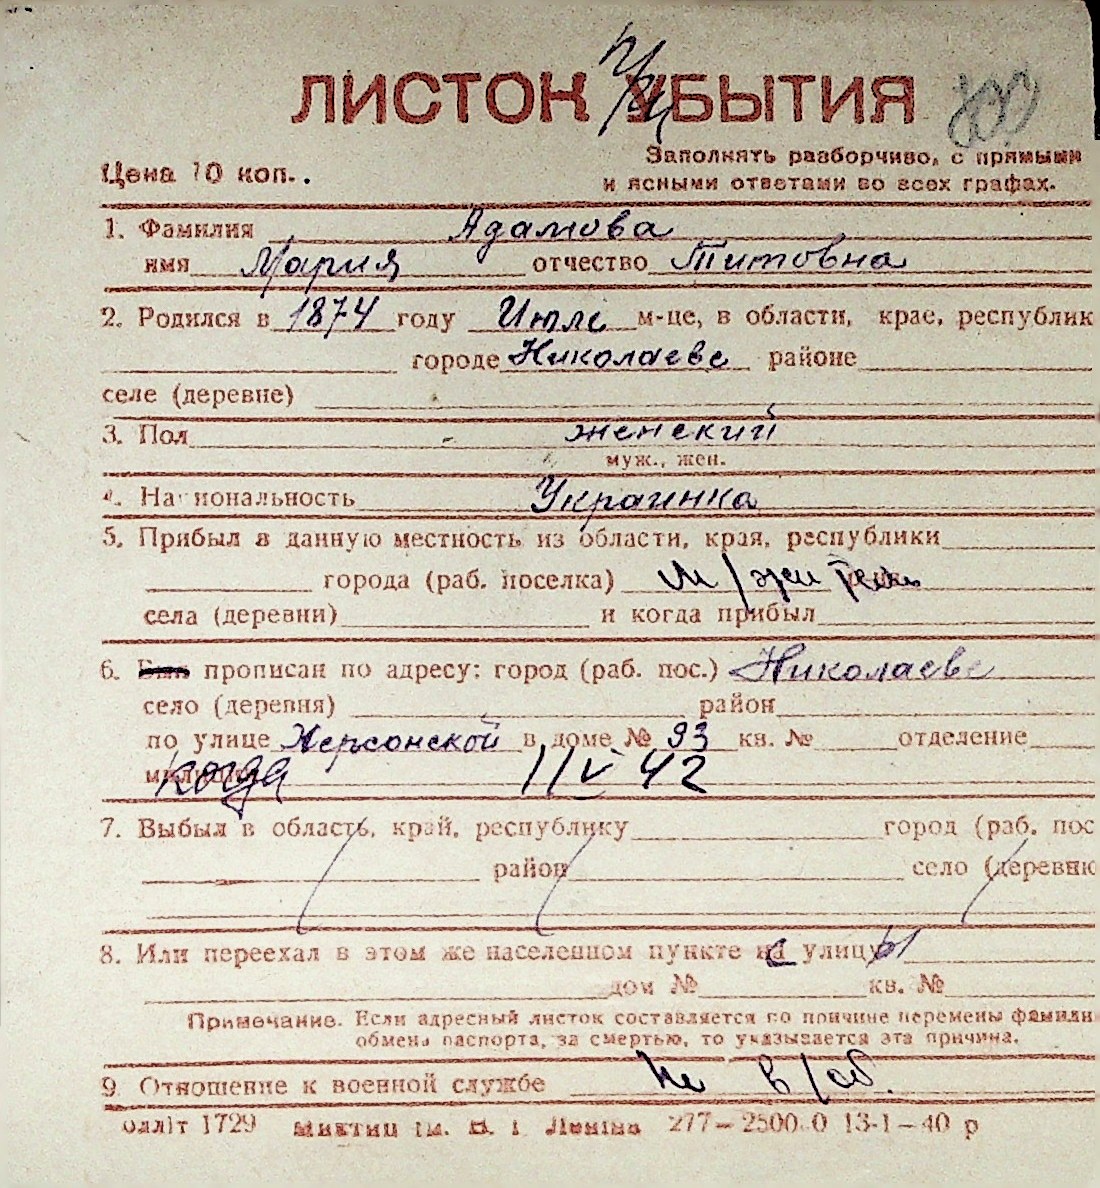 ЛИСТОК УБЫТИЯ
Цена 10 коп.
Заполнять разборчиво, с прямыми
и ясными ответами во всех графах.
1. Фамилия Адамова
имя Мария отчество Титовна
2. Родился в 1874 году Июле м-це, в области, крае, республик
городе Николаеве районе
селе (деревне)
3. Пол женский
муж., жен.
4. Национальность Украинка
5. Прибыл в данную местность из области, края, республики
города (раб. поселка) м/жи тель
села (деревни) и когда прибыл
6. прописан по адресу: город (раб. пос.) Николаеве
село (деревня) район
по улице Херсонской в доме № 93 кв. № отделение
милиции когда 1/V 42
7. Выбыл в область, край, республику город (раб. пос
район село (деревню
8. Или переехал в этом же населенном пункте с улицы
дом № кв. №
Примечание. Если адресный листок составляется по причине перемены фамили
обмена паспорта, за смертью, то указывается эта причина.
9. Отношение к военной службе не в/об.
1729 ім. Леніна 277—2500 0 13-1—40 р